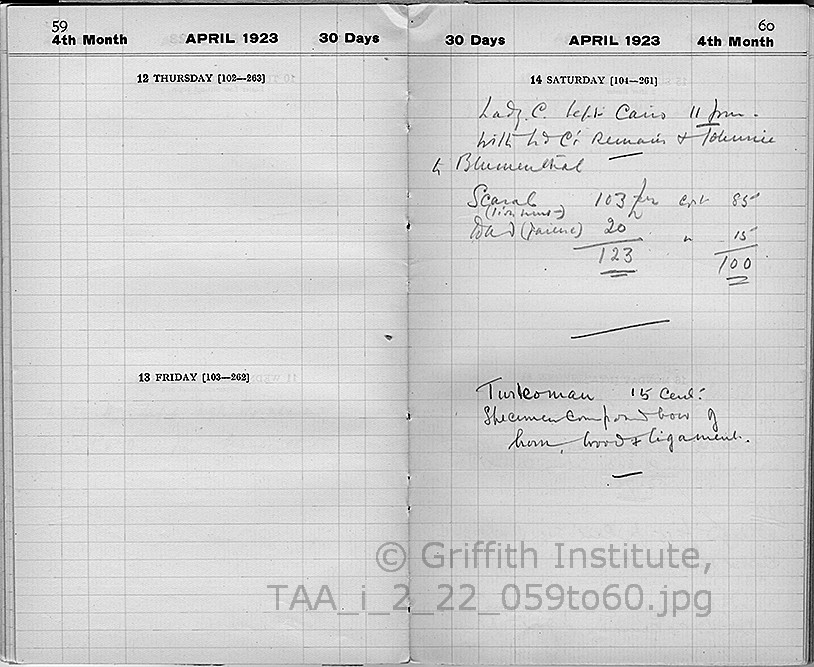 59
4th Month APRIL 1923 30 Days
12 THURSDAY [102—263]
13 FRIDAY [103—262]
60
30 Days APRIL 1923 4th Month
14 SATURDAY [104—261]
Lady C. left Cairo 11 pm.
with Ld C's Remains & Johnnie
to Blumenthal
Scarab 103 for cost 85
(lion hunt)
(faience) 20 " 15
123 100
Turkoman 15 Cent:
Specimen compound bow of
horn, wood & ligament.
© Griffith Institute,
TAA_i_2_22_059to60.jpg